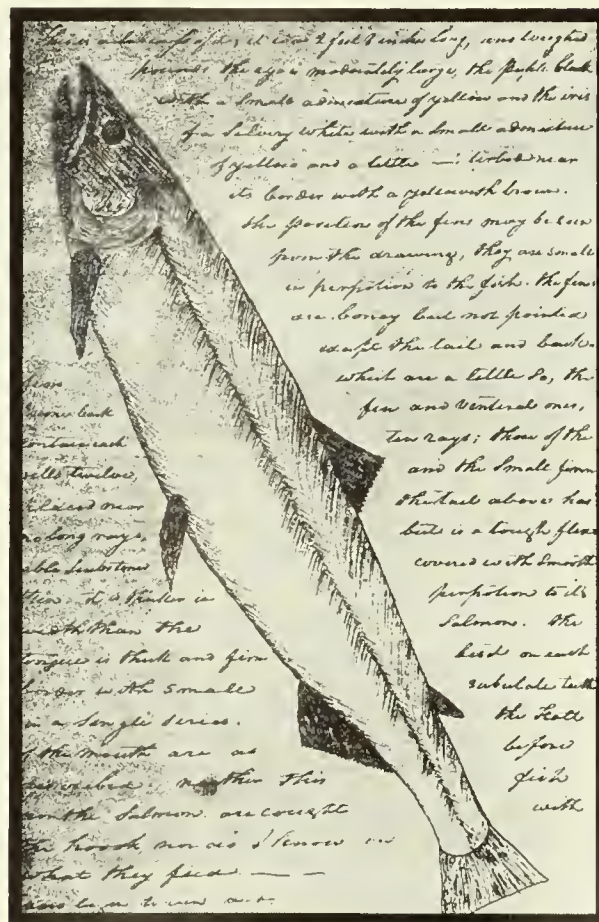 This is a likeness of it; it was 2 feet 8 inches long, and weighed
pounds the eye is moderately large, the puple black
with a small admixture of yellow and the iris
of a silvery white with a small admixture
of yellow and a little near
its border with a yellowish brown.
the position of the fins may be seen
from the drawing, they are small
in perpotion to the fish. the fins
are boney but not pointed
exept the tail and back
which are a little so, the
fin and ventral ones,
ten rays; those of the
and the small finn
the tail above has
but is a tough flex
covered with smooth
perpotion to its
Salmon. the
on each
subulate teeth
the
before
fish
with
fins
back
contain each
gills twelve,
placed near
no long rays,
able substance
skin. it is thicker in
width than the
tongue is thick and firm
border with small
in a single series.
of the mouth are as
described. neither this
nor the Salmon are caught
the hook, nor do I know
what they feed — —